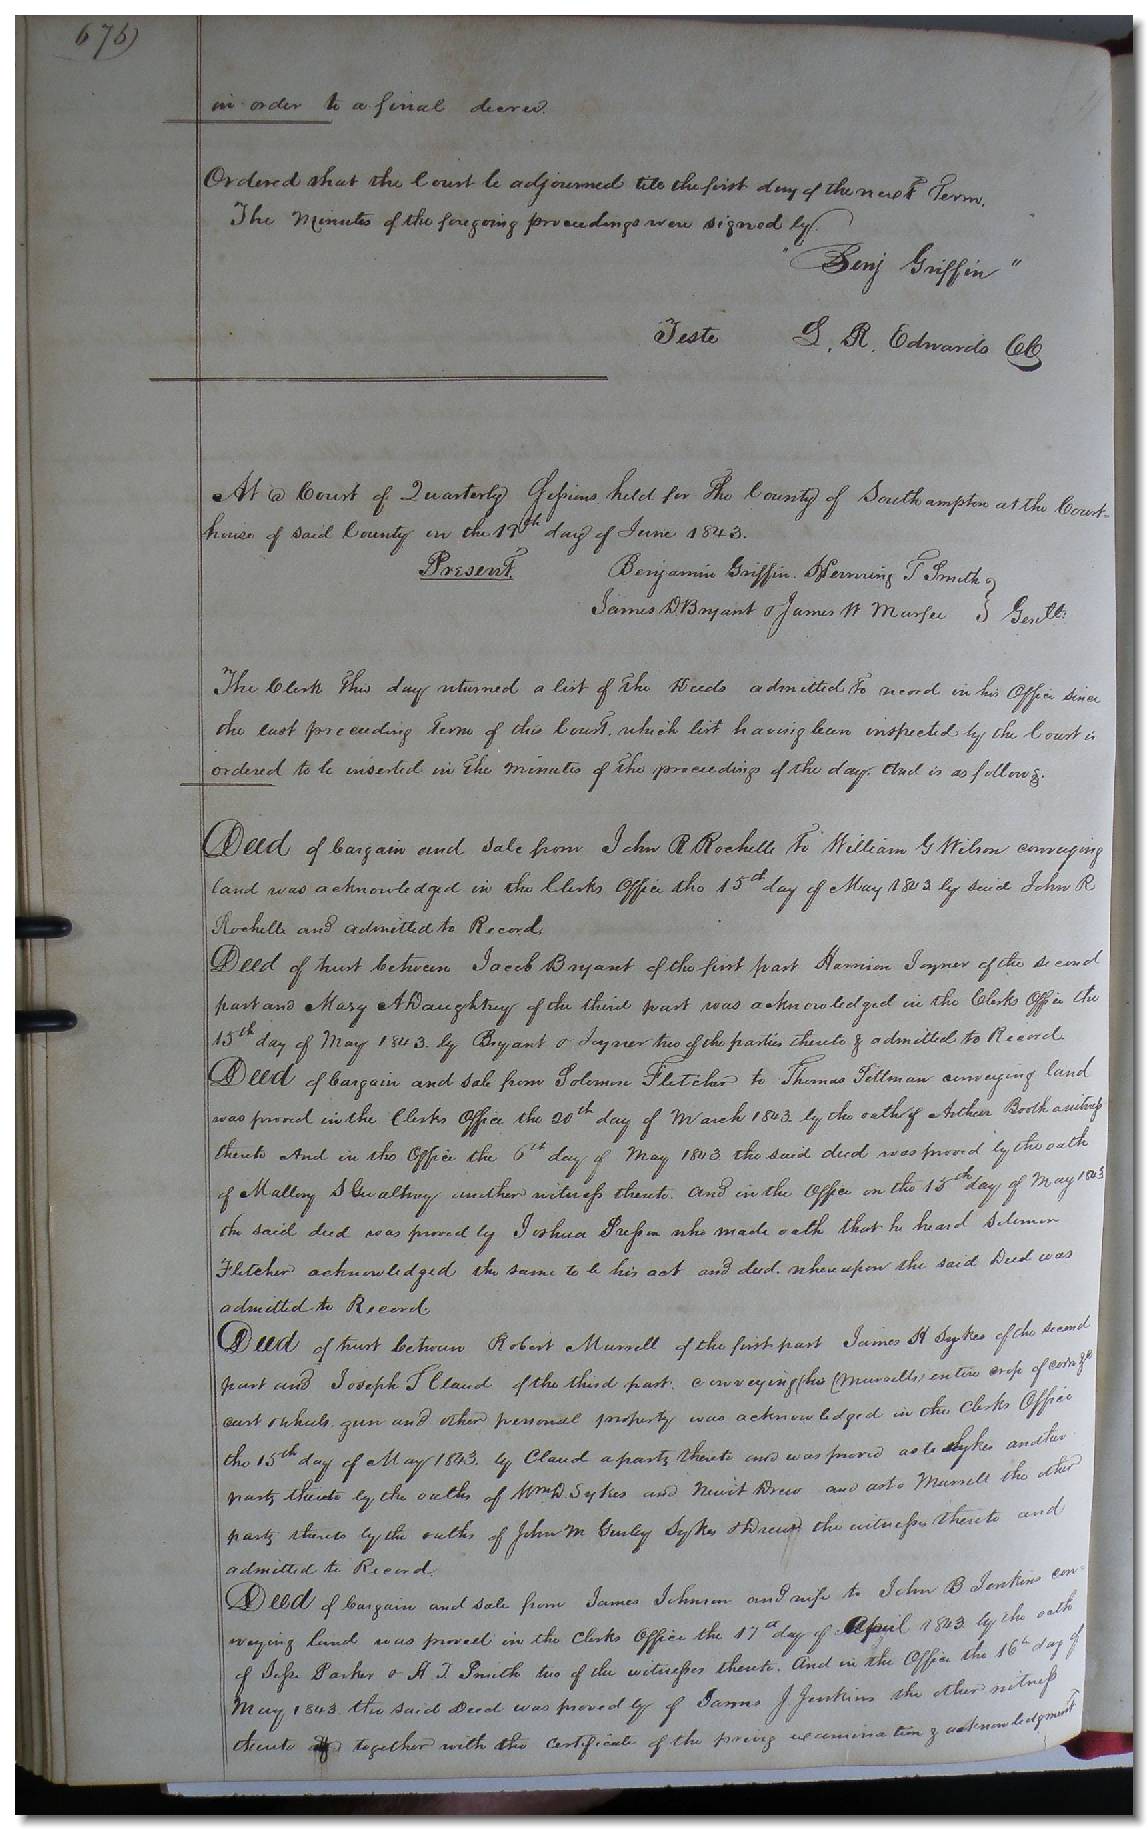 676)
in order to a final decree.
Ordered that the Court be adjourned till the first day of the next Term.
The Minutes of the foregoing proceedings were signed by
"Benj Griffin"
Teste L. R. Edwards CC
At a Court of Quarterly Sessions held for the County of Southampton at the Court-
house of said County on the 19th day of June 1843.
Present Benjamin Griffin. Henning T Smith
James D Bryant & James W Murfee Gentl:
The Clerk this day returned a list of the Deeds admitted to record in his Office since
the last preceeding Term of this Court. which list having been inspected by the Court is
ordered to be inserted in the minutes of the proceedings of the day. And is as follows.
Deed of bargain and sale from John R Rochelle to William G Wilson conveying
land was acknowledged in the Clerks Office the 15th day of May 1843 by said John R
Rochelle and admitted to Record.
Deed of trust between Jacob Bryant of the first part Harrison Joyner of the second
part and Mary A Daughtrey of the third part was acknowledged in the Clerks Office the
15th day of May 1843. by Bryant & Joyner two of the parties thereto & admitted to Record.
Deed of bargain and sale from Solomon Fletcher to Thomas Tillman conveying land
was proved in the Clerks Office the 20th day of March 1843 by the oath of Arthur Booth a witness
thereto And in the Office the 6th day of May 1843 the said deed was proved by the oath
of Mallory S Gwaltney another witness thereto. and in the Office on the 15th day of May 1843
the said deed was proved by Joshua Presson who made oath that he heard Solomon
Fletcher acknowledged the same to be his act and deed. whereupon the said Deed was
admitted to Record
Deed of trust between Robert Murrell of the first part James H Sykes of the second
part and Joseph T Claud of the third part. conveying his (Murrells) entire crop of corn &c
cart wheels. gun and other personal property was acknowledged in the Clerks Office
the 15th day of May 1843. by Claud a party thereto and was proved as to Sykes another
party thereto by the oaths of Wm D Sykes and Newit Drew and as to Murrell the other
party thereto by the oaths of John M Gurley Sykes & Drew the witnesses thereto and
admitted to Record.
Deed of bargain and sale from James Johnson and wife to John B Jenkins con-
veying land was proved in the Clerks Office the 17th day of April 1843 by the oath
of Jesse Parker & H. T. Smith two of the witnesses thereto. And in the Office the 16th day of
May 1843 the said Deed was proved by of James J Jenkins the other witness
thereto together with the certificate of the privy examination & acknowledgment